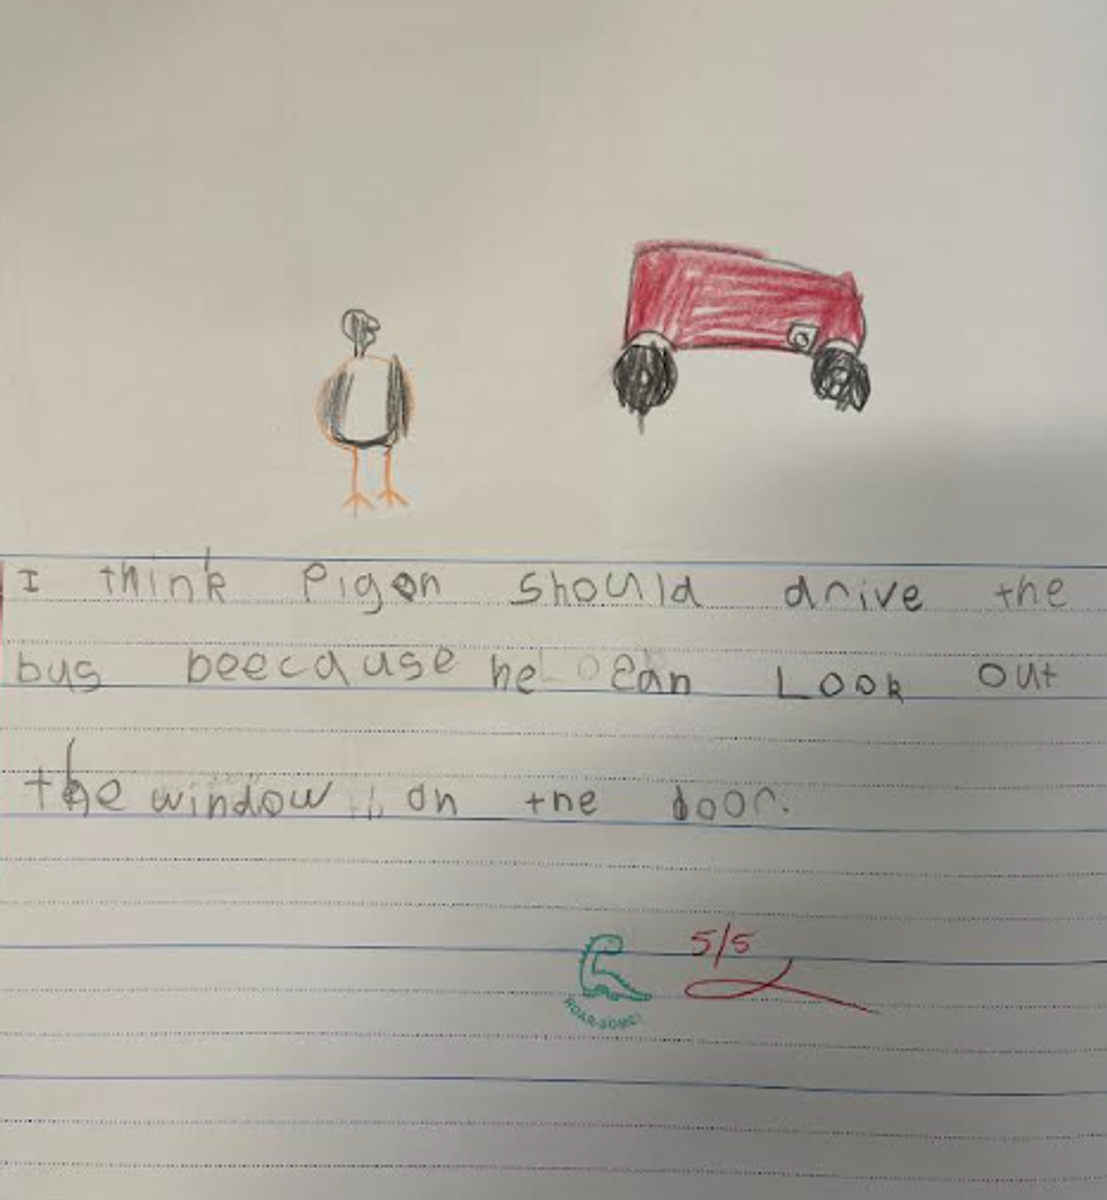 I think Pigon should drive the
bus beecause he can Look out
the window on the door.
5/5
ROAR-SOME!